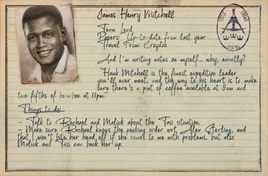 James Henry Mitchell
- Team Lead
- Papers: Up-to-date from last year
- Travel From Croydon
And I'm writing notes on myself... why, exactly?
Hank Mitchell is the finest expedition leader
you'll ever meet, and the way to his heart is to make
sure there's a pint of coffee available at 8am and
two fifths of bourbon at 11pm.
Things to do:
- Talk to Rachael and Malick about the Tosi situation.
- Make sure Rachael knows the pecking order with Alex Sterling, and
that I won't bite her head off if she comes to me with problems, but also
Malick and Tosi can back her up.